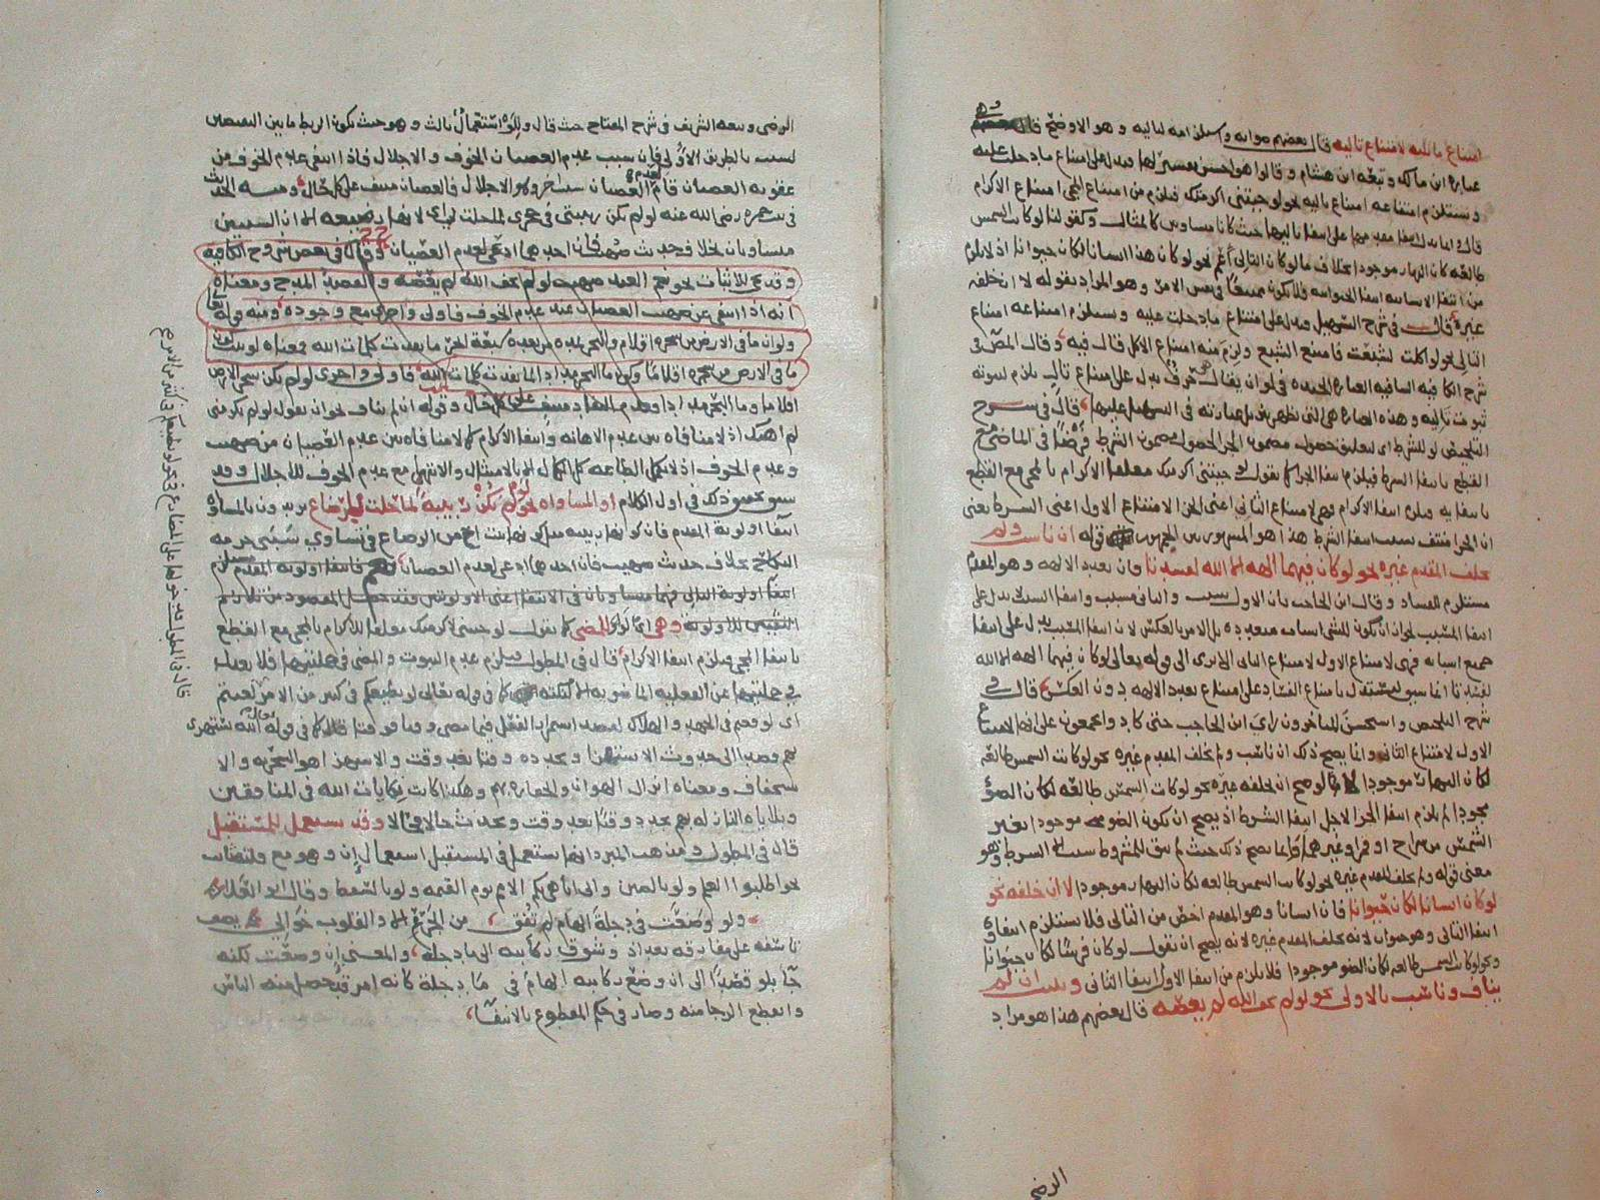 امتناع ما يليه لامتناع تاليه قال بعضهم صوابه واستلزامه لتاليه وهو الاوضح قال
عبارة ابن مالك وتبعه ابن هشام وقالوا هو احسن يدل على امتناع ما دخلت عليه
ويستلزم امتناعه امتناع تاليه نحو لو جيتني اكرمتك فيلزم من امتناع المجي امتناع الاكرام
حيث كانا متساويين كالمثال وكقولنا لو كانت الشمس
طالعة كان النهار موجودا بخلاف ما لو كان التالي اعم نحو لو كان هذا انسانا لكان حيوانا اذ لا يلزم
من انتفا الانسانيه انتفا الحيوانيه في نفس الامر وهو المراد بقوله لا ان خلفه
غيره قال في شرح التسهيل يدل على امتناع ما دخلت عليه ويستلزم امتناعه امتناع
التالي نحو لو اكلت لشبعت فامتنع الشبع ولزم منه امتناع الاكل قال فيه وقال المص في
شرح الكافيه العبارة الجيدة في لو ان يقال حرف يدل على امتناع تال يلزم لثبوته
ثبوت تاليه وهذه العبارة هي التي في التسهيل قال في شرح
التلخيص لو للشرط اى لتعليق حصول مضمون الجزا لحصول مضمون الشرط فرضا في الماضي مع
القطع بانتفا الشرط فيلزم انتفا الجزا كما تقول لو جيتني اكرمتك معلقا الاكرام بالمجي مع القطع
بانتفايه فيلزم انتفا الاكرام فهي لامتناع الثاني اعني الجزا لامتناع الاول اعني الشرط يعنى
ان الجزا منتف بسبب انتفا الشرط هذا هو المشهور بين الجمهور قوله ان ناسب ولم
يخلف المقدم غيره نحو لو كان فيهما الهة الا الله لفسدتا فان تعدد الالهه وهو المقدم
مستلزم للفساد وقال ابن الحاجب بان الاول سبب والثاني مسبب وانتفا السبب لا يدل على
انتفا المسبب لجواز ان يكون للشي اسباب متعدده بل الامر بالعكس لان انتفا المسبب يدل على انتفا
جميع اسبابه فهي لامتناع الاول لامتناع الثاني الا ترى الى قوله تعالى لو كان فيهما الهة الا الله
لفسدتا انما سيق ليستدل بامتناع الفساد على امتناع تعدد الالهه دون العكس قال في
شرح التلخيص واستحسن المتاخرون راي ابن الحاجب حتى كادوا يجمعون على انها لامتناع
الاول لامتناع الثاني وانما يصح ذلك ان ناسب ولم يخلف المقدم غيره نحو لو كانت الشمس طالعة
لكان النهار موجودا فلو صح ان يخلفه غيره نحو لو كانت الشمس طالعة لكان الضو
موجودا لم يلزم انتفا الجزا لاجل انتفا الشرط اذ يصح ان يكون الضو موجودا بغير
الشمس من سراج او قمر او غيرهما فانما يصح ذلك حيث لم يبق للمشروط سبب الا الشرط وهو
معنى قوله ولم يخلف المقدم غيره نحو لو كانت الشمس طالعه لكان النهار موجودا لا ان خلفه نحو
لو كان انسانا لكان حيوانا فان انسانا وهو المقدم اخص من التالي فلا يستلزم انتفاوه
انتفا التالي وهو حيوان لانه يخلف المقدم غيره لانه يصح ان تقول لو كان فرسا لكان حيوانا
ونحو لو كانت الشمس طالعه لكان الضو موجودا فلا يلزم من انتفا الاول انتفا الثاني ويثبت ان لم
يناف وناسب بالاولى نحو لو لم يخف الله لم يعصه قال بعضهم هذا هو مراد
الرضى
الرضى وتبعه الشريف في شرح المفتاح حيث قال وللو استعمال ثالث وهو حيث يكون الربط ما بين النقيضين
بالطريق الاولى فان سبب عدم العصيان الخوف والاجلال فاذا انتفى عدم الخوف من
عقوبه العصيان قام لعدم العصيان سبب اخر وهو الاجلال فالعصيان منتف على كل حال ومنه الحديث
في بنت حمزة رضى الله عنه لو لم تكن ربيبتي في حجري لما حلت لي اى لانها رضيعه الا ان السببين
متساويان بخلاف حديث صهيب فان احدهما ادعى لعدم العصيان وقال في بعض شروح الكافيه
وقد تجى للاثبات نحو نعم العبد صهيب لو لم يخف الله لم يعصه والقصد المدح ومعناه
انه اذا انتفى عن صهيب العصيان عند عدم الخوف فاولى واحرى مع وجوده ومنه قوله تعالى
ولو ان ما في الارض من شجرة اقلام والبحر يمده من بعده سبعة ابحر ما نفدت كلمات الله فمعناه لو ثبت كون
ما في الارض من شجرة اقلاما وكون ما البحر مدادا لما نفدت كلمات الله فاولى واحرى لو لم يكن شجر الارض
اقلاما وما البحر مدادا وعدم النفاد منتف على كل حال وقوله ان لم يناف نحو ان تقول لو لم تكرمني
لم اهنك اذ لا منافاه بين عدم الاهانه وانتفا الاكرام كما لا منافاه بين عدم العصيان من صهيب
وعدم الخوف اذ لا تكمل الطاعه كل الكمال الا بالامتثال والانتهى مع عدم الخوف للاجلال وقد
سبق تحقيق ذلك في اول الكلام او المساواه نحو لو لم تكن ربيبة لما حلت للرضاع يريدون بالمساواه
انتفا اولوية المقدم فان كونها ربيبه مساو لكونها بنت اخ من الرضاع في تساوي سببى حرمه
النكاح بخلاف حديث صهيب فان احدهما ادعى لعدم العصيان فانتفا اولوية المقدم يستلزم
انتفا اولوية التالي فهما متساويان في الانتفا اعنى الاولويتين
وهي اى لو للمضى كما تقول لو جيتني لاكرمتك معلقا للاكرام بالمجي مع القطع
بانتفا المجي فيلزم انتفا الاكرام قال في المطول فيلزم عدم الثبوت والمضى في جملتيها فلا يعدل
في جملتيها عن الفعليه الماضويه الا لنكتة كما في قوله تعالى لو يطيعكم في كثير من الامر لعنتم
اى لوقعتم في الجهد والهلاك لقصد استمرار الفعل فيما مضى وقتا فوقتا كما في قوله تعالى الله يستهزى
بهم قصدا الى حدوث الاستهزا وتجدده وقتا بعد وقت والاستهزا هو السخرية والا
ستخفاف ومعناه انزال الهوان والحقارة بهم وهكذا كانت نكايات الله في المنافقين
وبلاياه النازله بهم تتجدد وقتا بعد وقت وتحدث حالا فحالا وقد تستعمل للمستقبل
قال في المطول ومذهب المبرد انها تستعمل في المستقبل استعمال ان وهو مع قلته ثابت
نحو اطلبوا العلم ولو بالصين واني اباهي بكم الامم يوم القيمه ولو بالسقط وقال ابو العلاء
ولو وضعت في دجلة الهام لم تفق من الجرع الا والقلوب خوالي يصف
تاسفه على مفارقه بغداد وشوق ركابيه الى ما دجلة والمعنى ان وضعت لكنه
جا بلو قصدا الى ان وضع ركابيه الهام في ما دجلة كانه امر قد حصل منه الياس
وانقطع الرجا منه وصار في حكم المقطوع بالانتفا